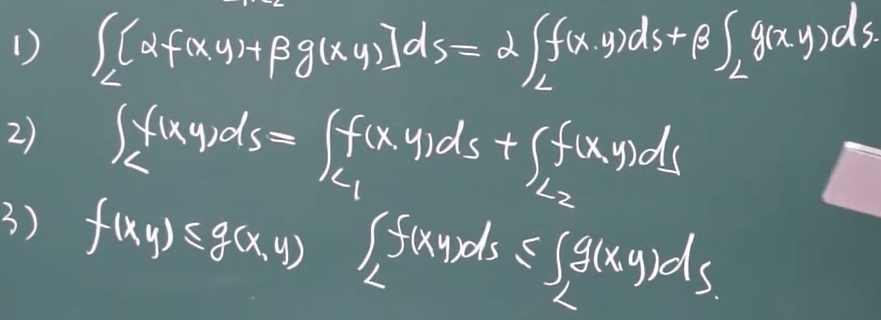 1) ∫_L [αf(x,y)+βg(x,y)]ds = α∫_L f(x,y)ds + β∫_L g(x,y)ds.
2) ∫_L f(x,y)ds = ∫_L₁ f(x,y)ds + ∫_L₂ f(x,y)ds
3) f(x,y) ≤ g(x,y) ∫_L f(x,y)ds ≤ ∫_L g(x,y)ds.